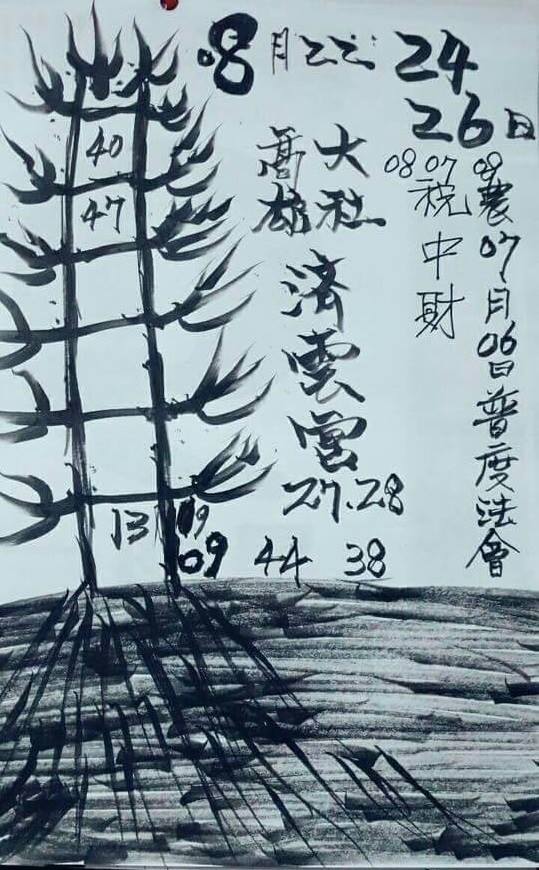 08月22 24
26日
09 農07月06日普度法會
08 07 稅中財
大社
高雄
濟雲宮
27.28
40
47
13 19
09 44 38